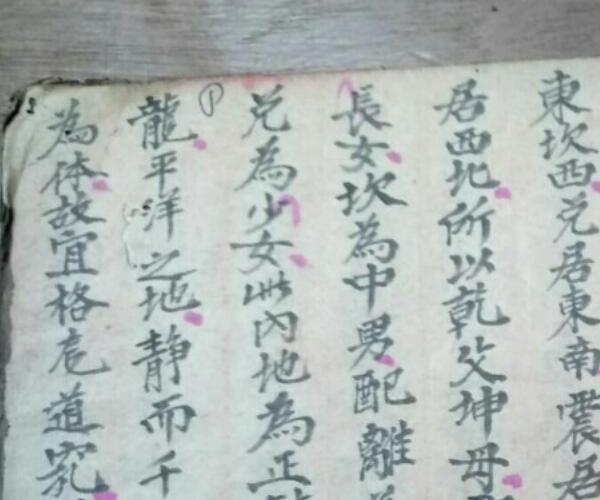 東坎西兑居東南震居
居西北所以乾父坤母
長女坎為中男配離
兑為少女此內地為正
龍平洋之地静而千
為体故宜格危道究